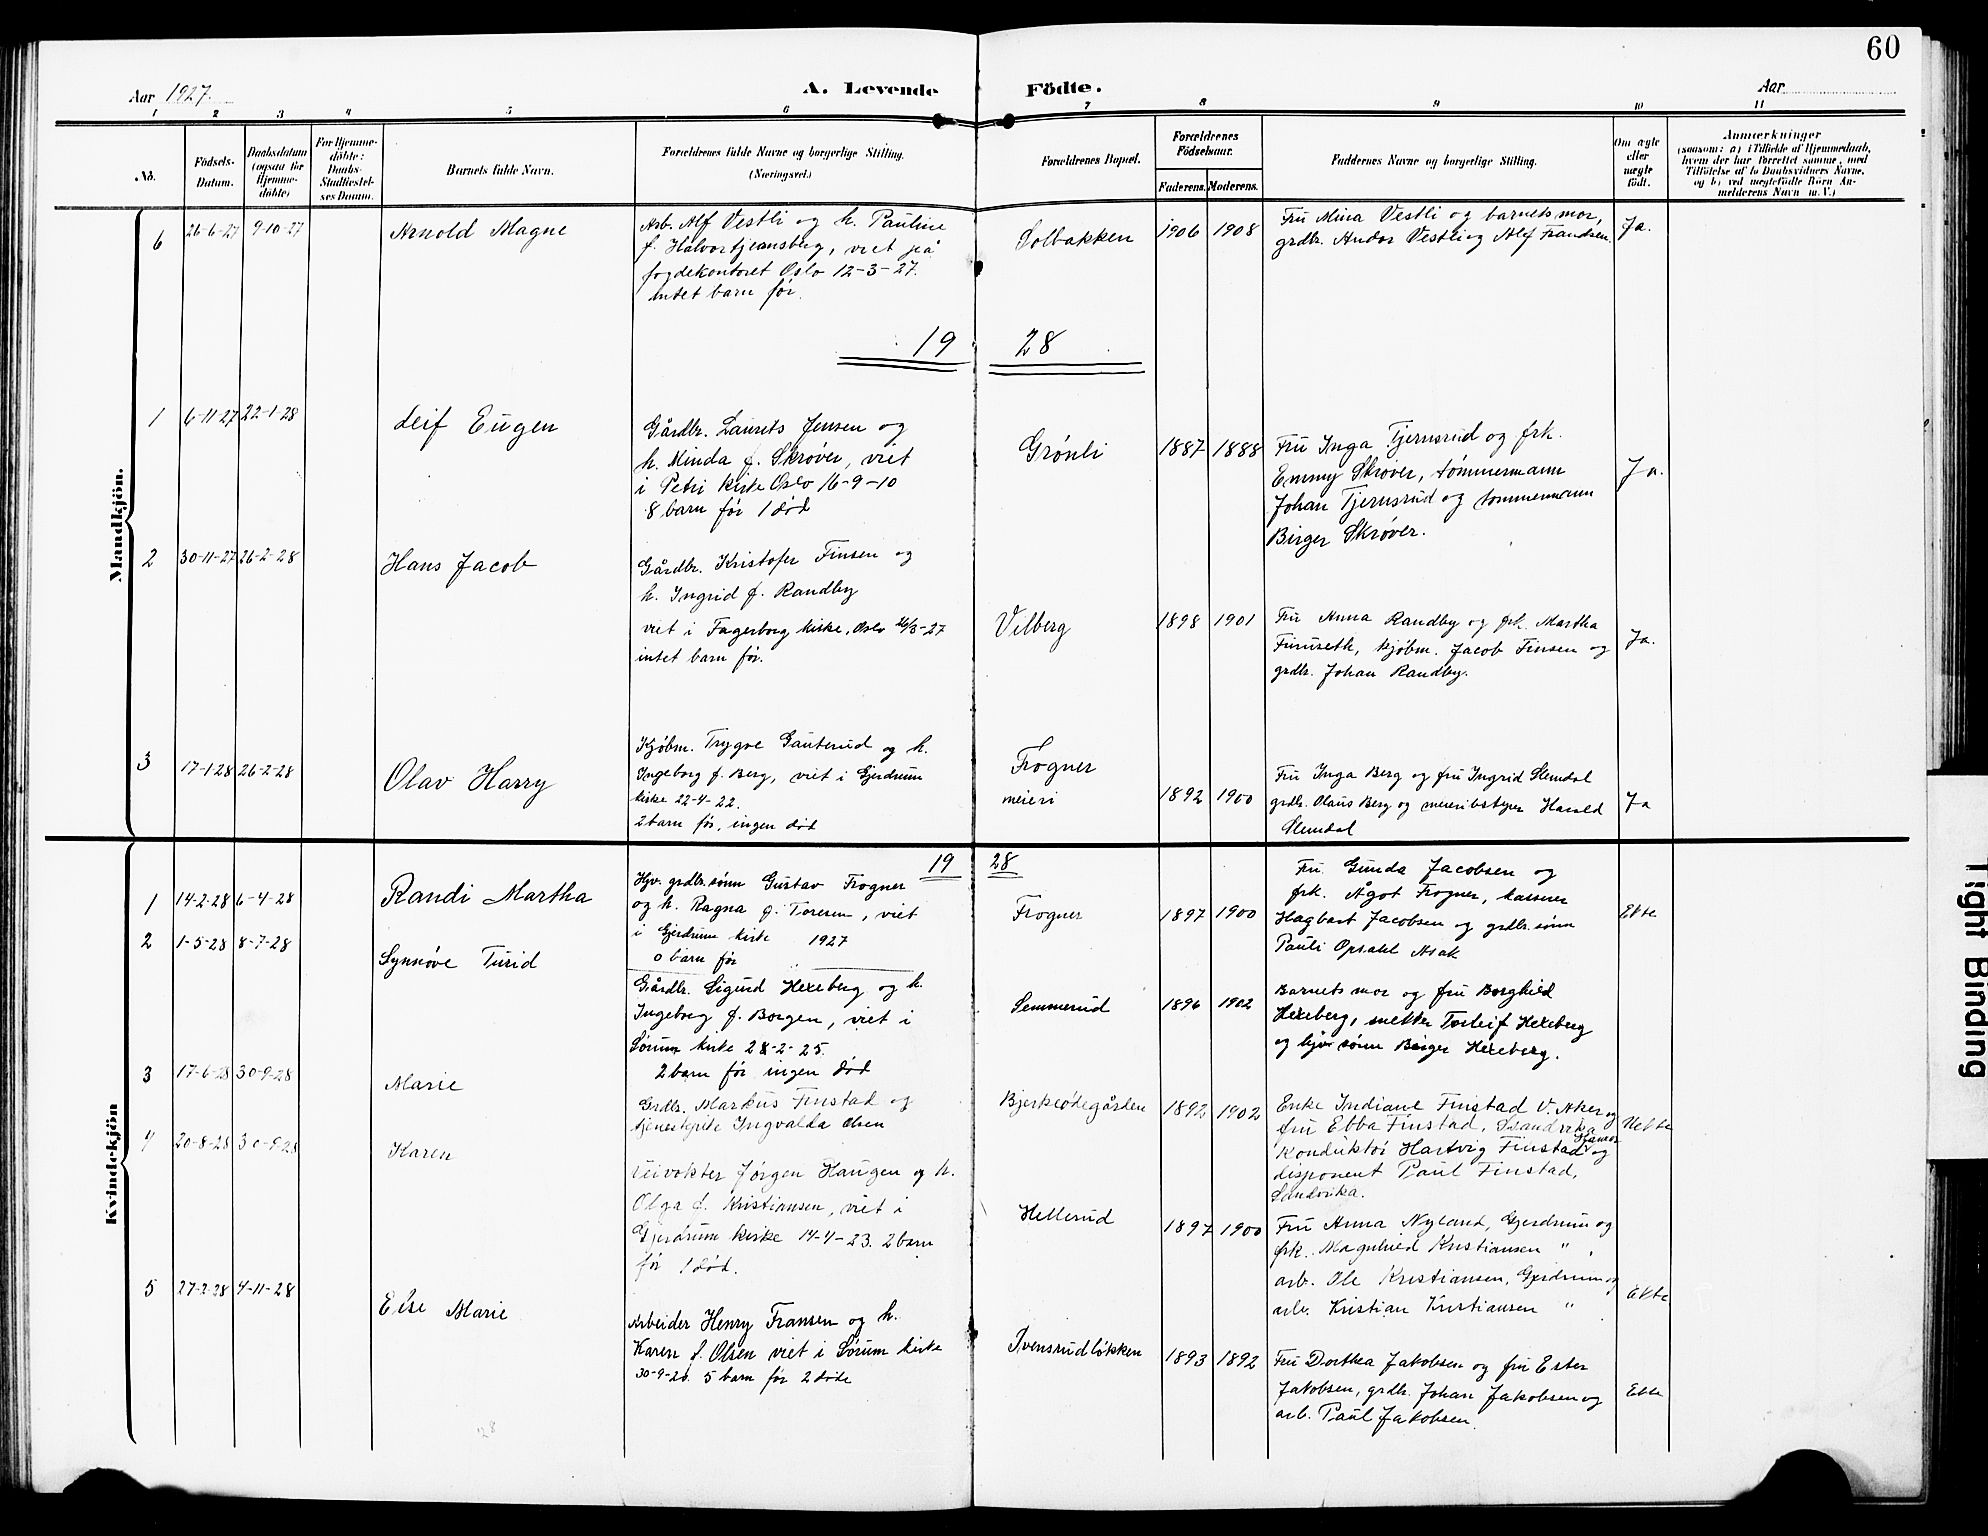 60
Aar 1927.
A. Levende Födte.
Aar
1 2 3 4 5 6 7 8 9 10 11
No.
Födsels-Datum.
Daabsdatum (ogsaa for Hjemme-döbte)
For Hjemme-döbte: Daabs-Stadfæstel-ses Datum.
Barnets fulde Navn.
Forældrenes fulde Navne og borgerlige Stilling.
(Næringsvei.)
Forældrenes Bopæl.
Forældrenes Födselsaar.
Faderens. Moderens.
Faddernes Navne og borgerlige Stilling.
Om ægte eller uægte födt.
Anmærkninger
(saasom: a) i Tilfælde af Hjemmedaab,
hvem der har forrettet samme, med
Tilföielse af to Daabsvidners Navne,
og b) ved uægtefödte Börn An-
melderens Navn m. V.)
Mandkjön.
6 26-6-27 9-10-27 Arnold Magne
Arb. Alf Vestli og h. Pauline
f. Halvorstjeansberg, viet på
fogdekontoret Oslo 12-3-27.
Intet barn før.
Solbakken 1906 1908
Fru Mina Vestli og barnets mor,
grdbr. Andor Vestli og Alf Frandsen.
Ja.
19 28
1 6-11-27 22-1-28 Leif Eugen
Gårdbr. Laurits Jensen og
h. Minda f. Skrøver, viet
i Petri kirke Oslo 16-9-10
8 barn før 1 død
Grønli 1887 1888
Fru Inga Tjernsrud og frk.
Emmy Skrøver, tømmermann
Johan Tjernsrud og tømmermann
Birger Skrøver.
Ja.
2 30-11-27 26-2-28 Hans Jacob
Gårdbr. Kristofer Finsen og
h. Ingrid f. Randby
viet i Fagerborg kirke, Oslo 26/3-27
intet barn før.
Vilberg 1898 1901
Fru Anna Randby og frk. Martha
Furuseth, kjøbm. Jacob Finsen og
grdbr. Johan Randby.
Ja.
3 17-1-28 26-2-28 Olav Harry
Kjøbm. Trygve Gauterud og h.
Ingeborg f. Berg, viet i Gjerdrum
kirke 22-4-22.
2 barn før, ingen død
Frogner
meieri
1892 1900
Fru Inga Berg og fru Ingrid Slemdal
grdbr. Olaus Berg og meieribestyrer Harald
Slemdal
Ja
Kvindekjön
19 28
1 14-2-28 6-4-28 Randi Martha
Hjv. grdbr.sønn Gustav Frogner
og h. Ragna f. Toresen, viet
i Gjerdrum kirke 1927
0 barn før
Frogner 1897 1900
Fru. Gunda Jacobsen og
frk. Ågot Frogner, kasserer
Hagbart Jacobsen og grdbr.sønn
Pauli Opsahl Asak
Ekte
2 1-5-28 8-7-28 Synnøve Turid
Gårdbr. Sigurd Hexeberg og h.
Ingeborg f. Borgen, viet i
Sørum kirke 28-2-25.
2 barn før ingen død
Semmerud 1896 1902
Barnets mor og fru Borghild
Hexeberg, snekker Torleif Hexeberg
og hjv. sønn Birger Hexeberg.
3 17-6-28 30-9-28 Marie
Grdbr. Markus Finstad og
tjenestepike Ingvalda Olsen
Bjerkeødegården 1892 1902
Enke Indiane Finstad V. Aker og
fru Ebba Finstad, Sandvika
Konduktør Hartvig Finstad og
disponent Paul Finstad,
Sandvika.
Uekte
4 20-8-28 30-9-28 Karen
Veivokter Jørgen Haugen og h.
Olga f. Kristiansen, viet i
Gjerdrum kirke 14-4-23. 2 barn
før 1 død.
Hellerud 1897 1900
Fru Anna Nyland, Gjerdrum og
frk. Magnhild Kristiansen "
arb. Ole Kristiansen, Gjerdrum og
arb. Kristian Kristiansen "
Ekte
5 27-2-28 4-11-28 Else Marie
Arbeider Henry Fransen og h.
Karen f. Olsen viet i Sørum kirke
30-9-26. 5 barn før 2 døde
Ivensrudløkken 1893 1892
Fru Dorthea Jakobsen og fru Ester
Jakobsen, grdb. Johan Jakobsen og
arb. Paul Jakobsen.
Ekte
28
Tight Binding